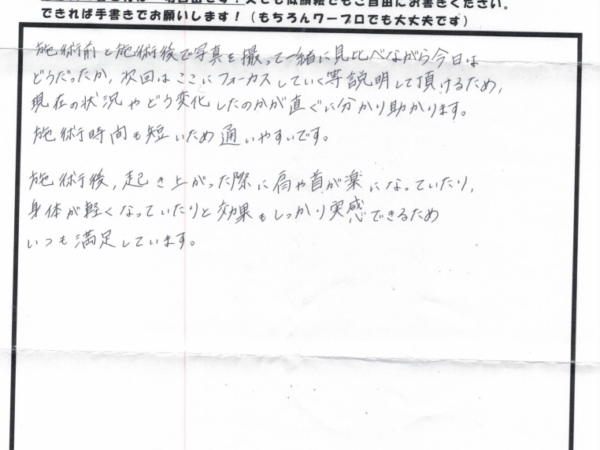 できれば手書きでお願いします！（もちろんワープロでも大丈夫です）
施術前と施術後で写真を撮って一緒に見比べながら今日は
どうだったか、次回はここにフォーカスしていく等説明して頂けるため、
現在の状況やどう変化したのかが直ぐに分かり助かります。
施術時間も短いため通いやすいです。
施術後、起き上がった際に肩や首が楽になっていたり、
身体が軽くなっていたりと効果もしっかり実感できるため
いつも満足しています。